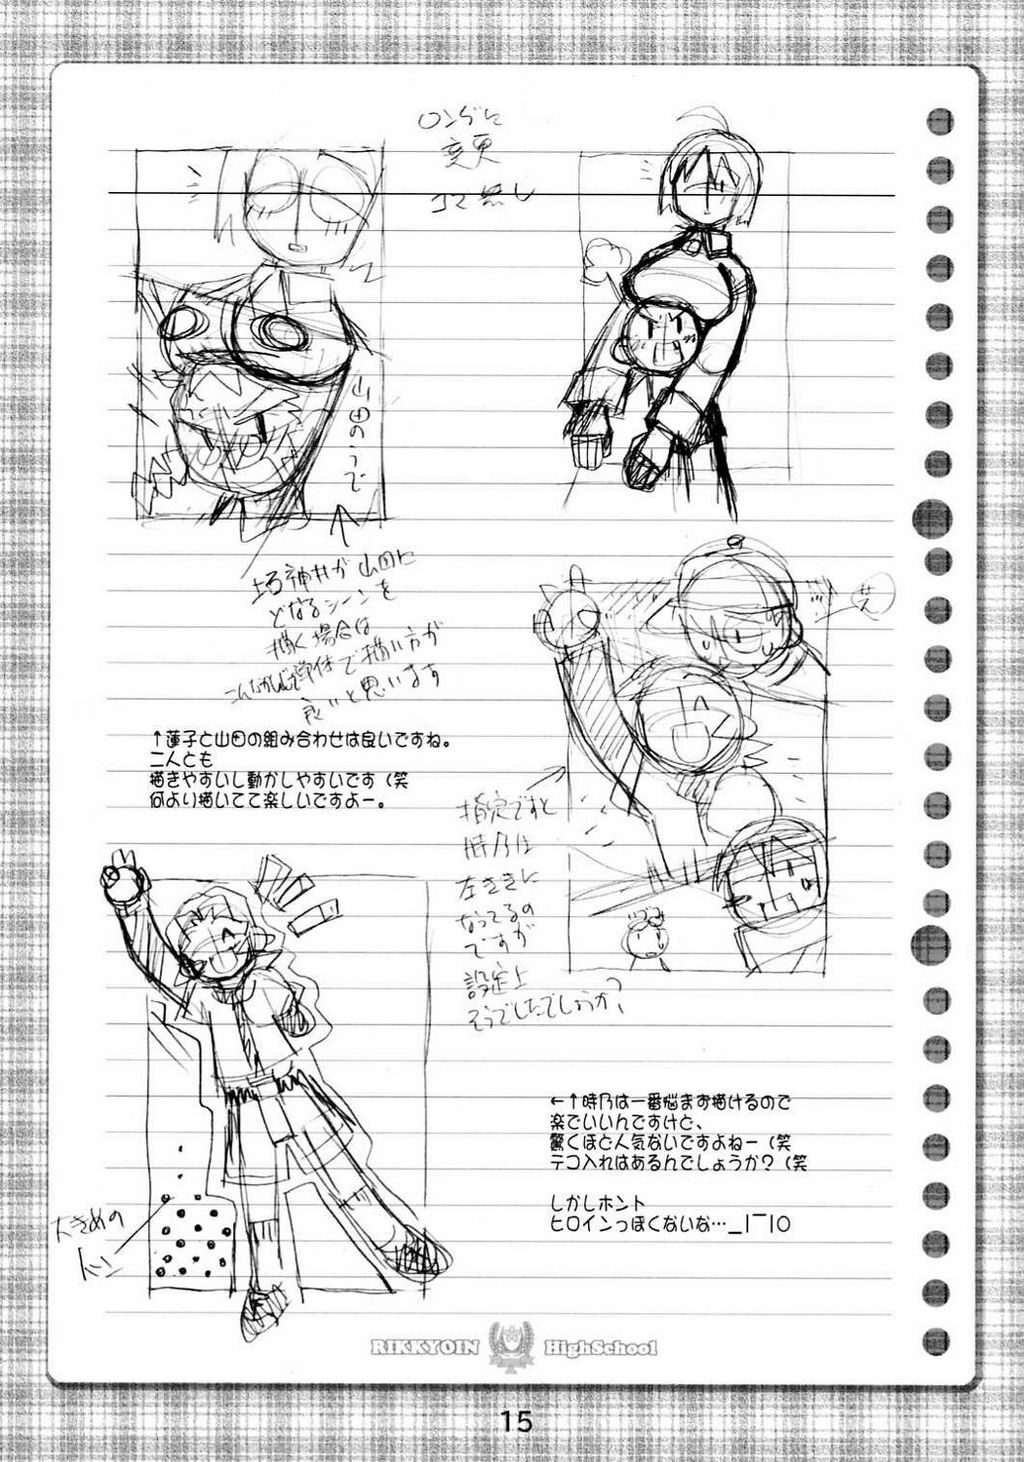 ロングに
変更
コマ無し
山田のうで
塔神井が山田に
どなるシーンを
描く場合は
で描い方が
良いと思います
↑蓮子と山田の組み合わせは良いですね。
二人とも
描きやすいし動かしやすいです（笑
何より描いてて楽しいですよー。
指定ですと
時乃は
左ききに
なってるの
ですが
設定上
そうでしたでしょうか？
←↑時乃は一番悩まず描けるので
楽でいいんですけど、
驚くほど人気ないですよねー（笑
テコ入れはあるんでしょうか？（笑
しかしホント
ヒロインっぽくないな…_|￣|○
大きめの
トーン
RIKKYOIN HighSchool
15